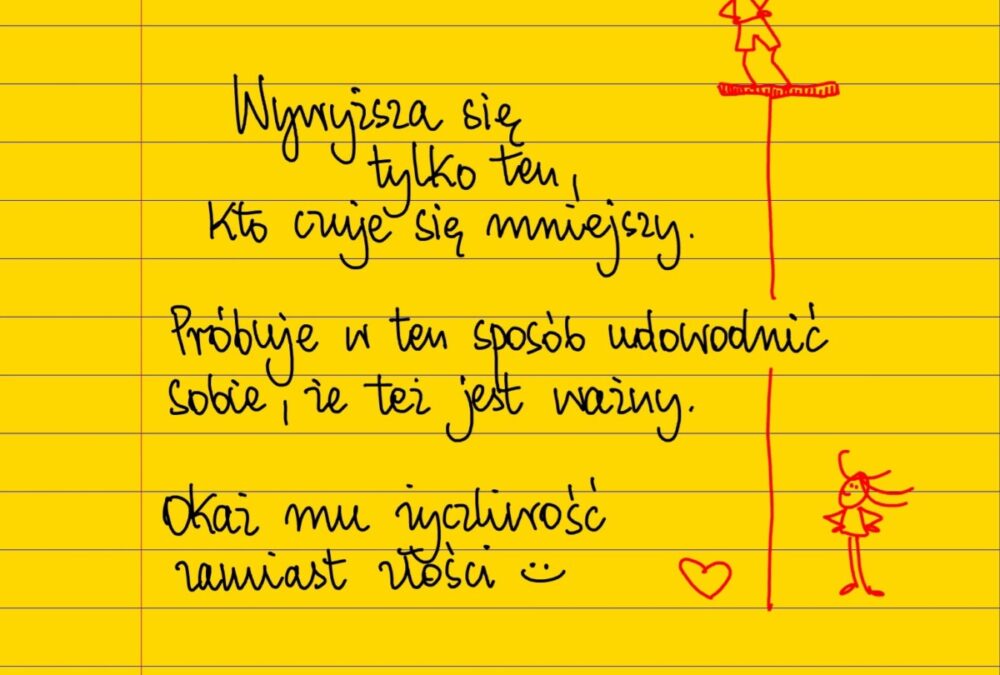 Wywyższa się
tylko ten,
Kto czuje się mniejszy.
Próbuje w ten sposób udowodnić
sobie, że też jest ważny.
Okaż mu życzliwość
zamiast złości :)